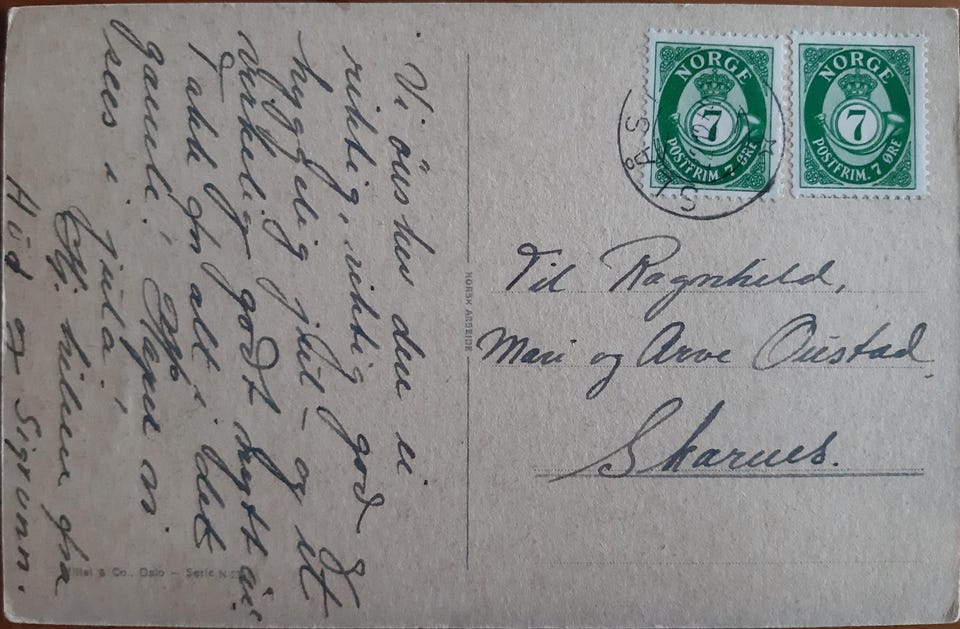 Vi önsker dere ei
riktig, riktig god &
hyggelig jul - og eit
verkelig godt nytt år!
Takk for alt i det
gamle! Håper vi
sees i jula!
Hj. hilsen fra
og Sigrunn.
& Co., Oslo — Serie N
NORSK ARBEIDE
NORGE
7
POSTFRIM. 7 ØRE
NORGE
7
POSTFRIM. 7 ØRE
Til Ragnhild,
Mari og Arve Oustad,
Skarnes.